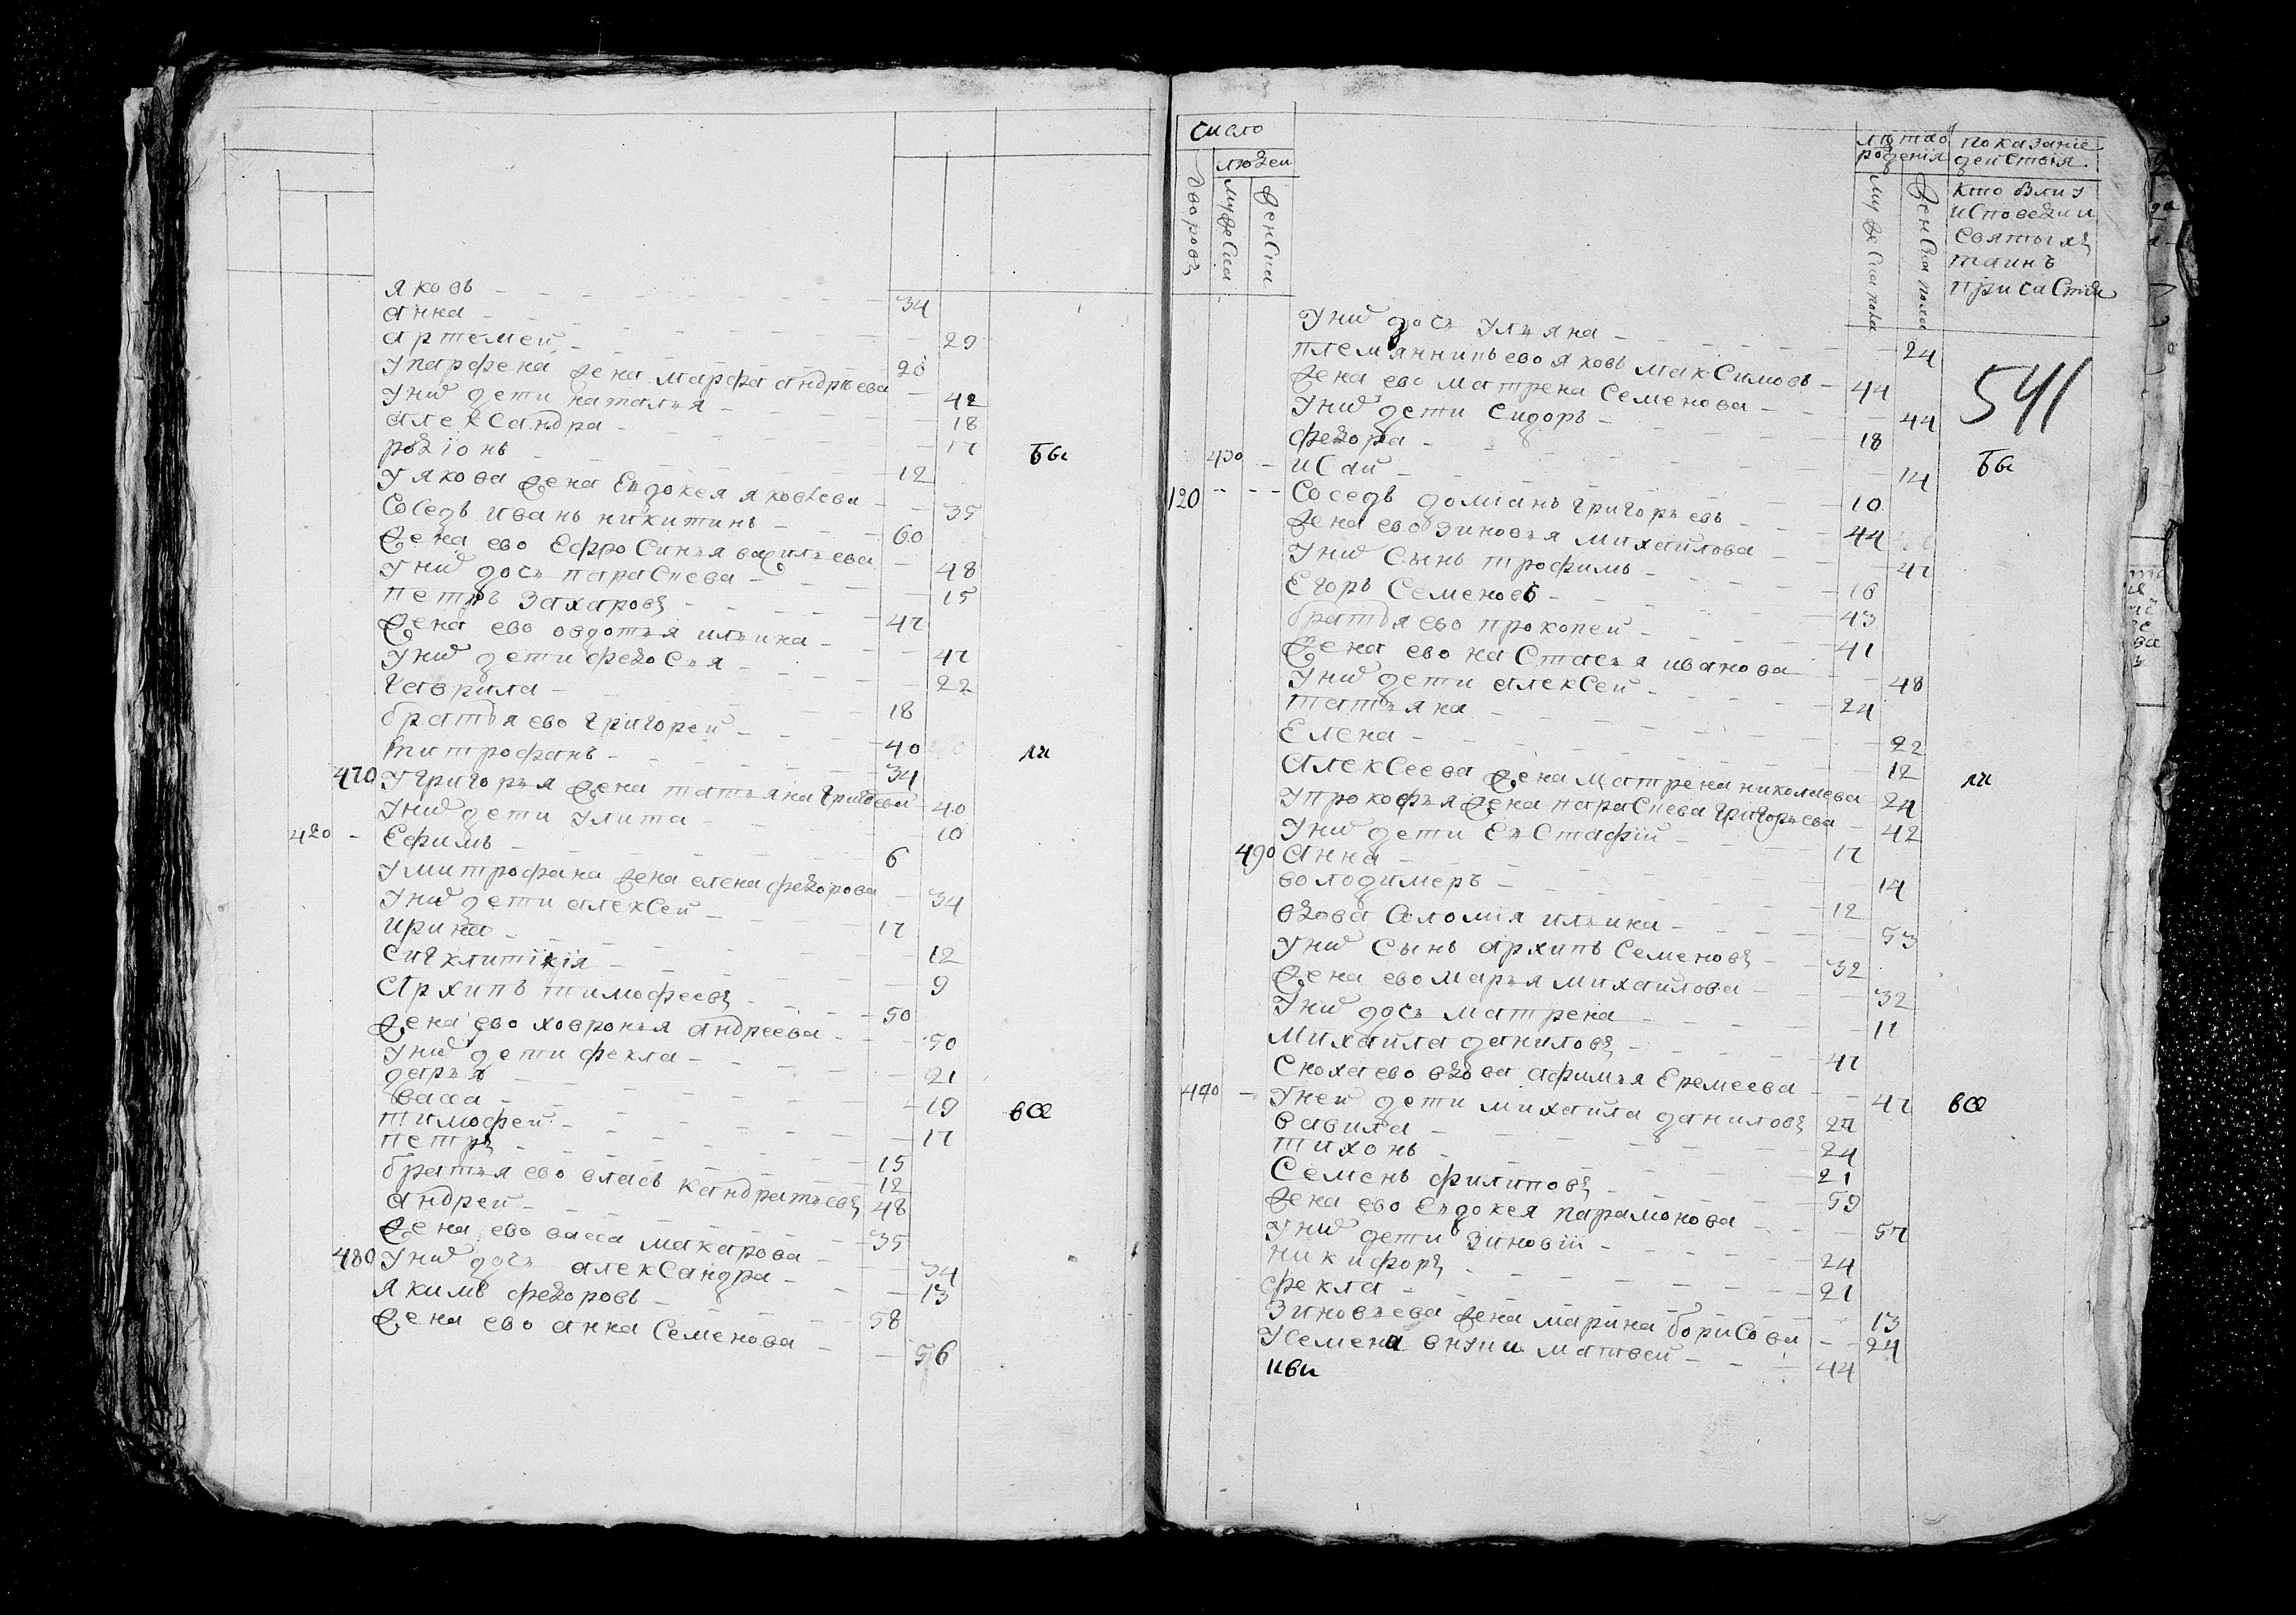 яковъ 34
анна 29
артемей 20
у парфена жена марфа андрѣева 42
у них дети наталья 18
александра 17
родіонъ 12 бы
у якова жена Евдокея яковлева 35
Соседъ иванъ никитинъ 60
жена ево Ефросинья васильева 48
у них дочь парасковья 15
петръ захаровъ 47
жена ево овдотья ильина 47
у них дети федосья 22
гаврила 18
братья ево григорей 40
митрофанъ 34 ли
470 у григорья жена татьяна григорьева 40
у них дети улита 10
420 Ефимъ 6
у митрофана жена елена федорова 34
у них дети алексей 17
ирина 12
сигклитикія 9
Архипъ тимофеевъ 50
жена ево ховронья андреева 50
у них дети фекла 21
дарья 19
васса 17 все
тимофей 15
петръ 12
братья ево власъ кандратьевъ 48
андрей 35
жена ево васса макарова 34
480 у них дочь александра 13
якимъ федоровъ 58
жена ево анна Семенова 56
число
людеи
дворовъ
мужеска
женска
лѣта от рожденія
мужеска пола
женска пола
показаніе действія
кто былъ у
исповеди и
святыхъ
таинъ
причастія
541
у них дочь ульяна 24
племянникъ ево яковъ максимовъ 44
жена ево матрена семенова 44
у них дети сидоръ 18
федора 14 бы
430 исай 10
120 Соседъ доміанъ григорьевъ 44
жена ево зиновья михайлова 47
у них сынъ трофимъ 16
Егоръ Семеновъ 43
братья ево прокопей 41
жена ево настасья иванова 48
у них дети алексей 24
татьяна 22
Елена 12
Алексеева жена матрена николаева 24 ли
у прокофья жена парасковья григорьева 42
у них дети Евстафій 17
490 анна 14
володимеръ 12
вдова Соломія ильина 53
у них сынъ архипъ Семеновъ 32
жена ево марья михайлова 32
у них дочь матрена 11
Михайла даниловъ 47
Сноха ево вдова афимья Еремеева 47
440 у ней дети михайла даниловъ 27 все
вавила 24
тихонъ 21
Семенъ филиповъ 59
жена ево Евдокея парамонова 57
у них дети зиновій 24
никифоръ 21
фекла 13
Зиновьева жена марина борисова 24
у Семена внуки матвей 44